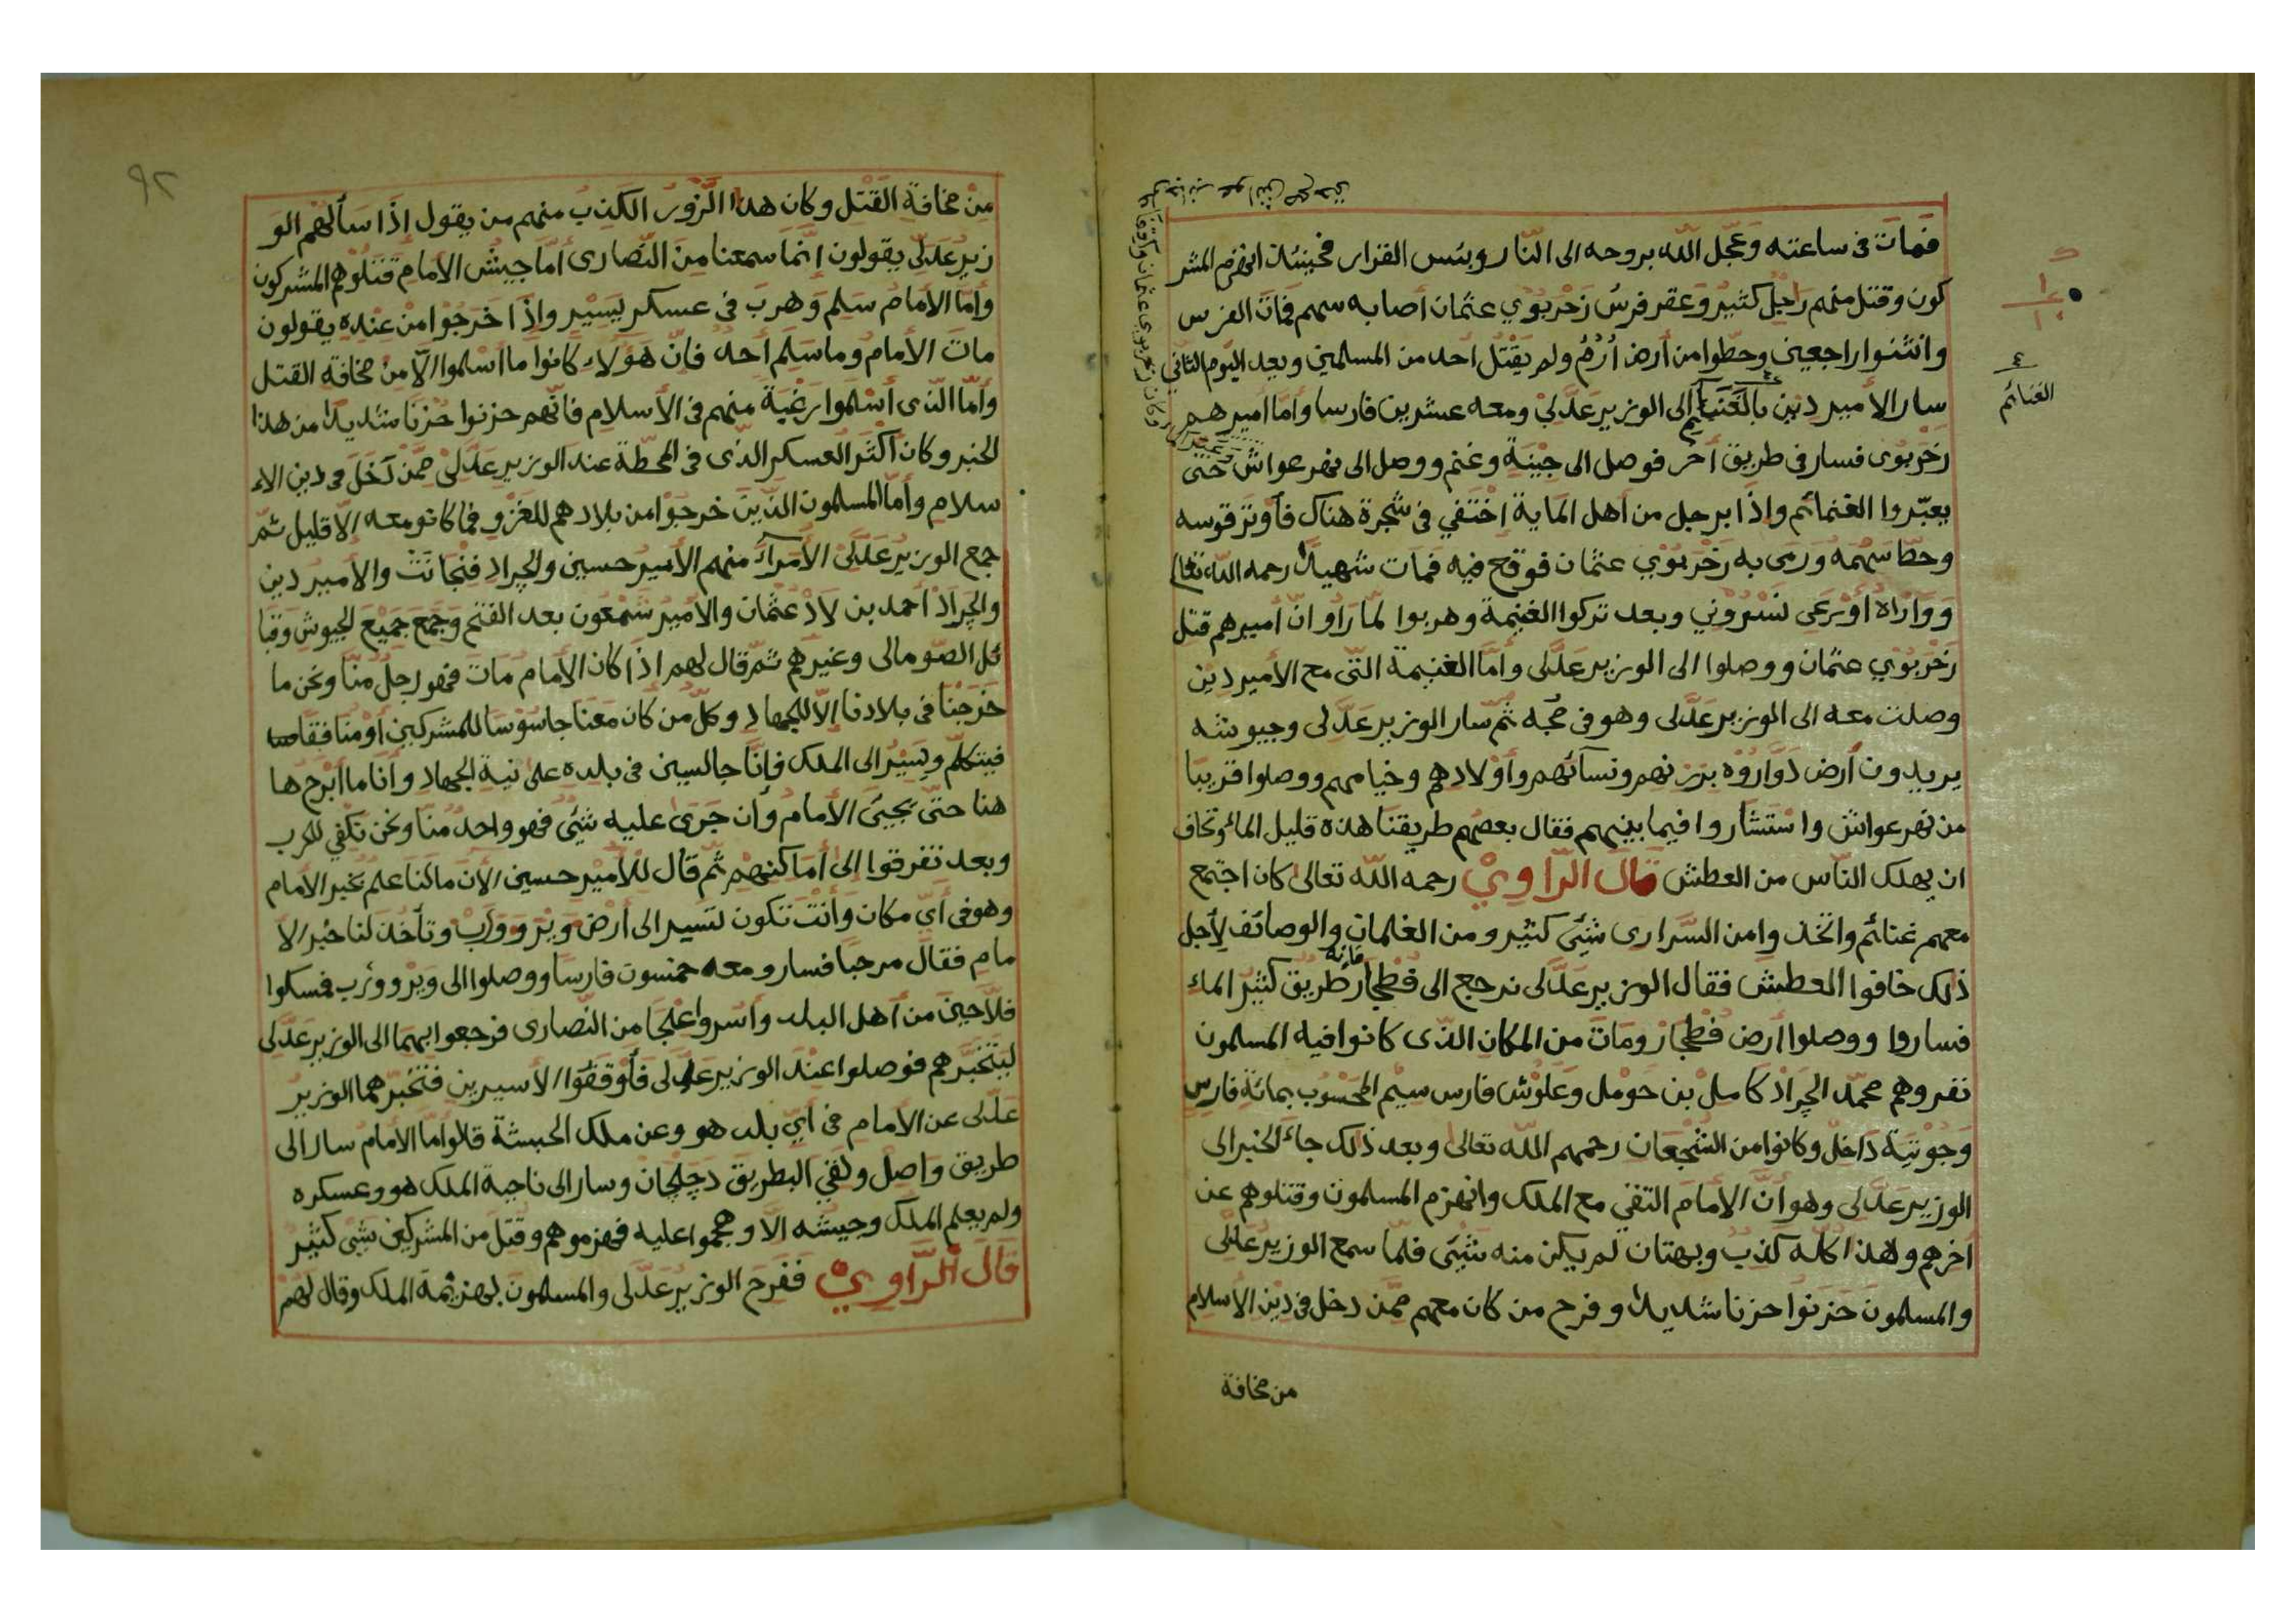 فمات فى ساعته وعجّل اللّه بروحه الى النّار وبئس القرار فحينئذ انهزم المشر
كون وقتل منهم راجل كثير وعقر فرس زحربوي عثمان أصابه سهم فمات الفرس
وانثنوا راجعين وحطّوا من أرض أرم ولم يقتل أحد من المسلمين وبعد اليوم الثّانى
سار الأمير دين بالغنائم الى الوزير عدّلى ومعه عشرين فارسا وأما أميرهم
زحربوى فسار فى طريق أخر فوصل الى جينة وغنم ووصل الى نهر عواش حتّى
يعبّروا الغنمائم وإذا برجل من أهل الماية اختفي فى شجرة هناك فأوتر قوسه
وحطّ سهمه ورمى به زحربوي عثمان فوقع فيه فمات شهيدا رحمه اللّه تعالى
وواراه أورعى نسروني وبعد تركوا الغنيمة وهربوا لمّا رأوا انّ أميرهم قتل
زحربوي عثمان ووصلوا الى الوزير عدّلى وأمّا الغنيمة التّى مع الأمير دين
وصلت معه الى الوزير عدّلى وهو فى جّه ثمّ سار الوزير عدّلى وجيوشه
يريدون أرض دواروه برزنهم ونسائهم وأولادهم وخيامهم ووصلوا قريبا
من نهر عواش واستشاروا فيما بينهم فقال بعضهم طريقنا هذه قليل الماء ونخاف
ان يهلك النّاس من العطش قال الرّاوي رحمه اللّه تعالى كان اجتمع
معهم غنائم واتّخذوا من السّرارى شئ كثير ومن الغلمان والوصائف لأجل
ذلك خافوا العطش فقال الوزير عدّلى نرجع الى فطجار فانه طريق كثير الماء
فساروا ووصلوا أرض فطجار ومات من المكان الذّى كانوا فيه المسلمون
نفر وهم محمّد الجراد كامل بن حومل وعلوش فارس سيم المحسوب بمائة فارس
وجوتية داخل وكانوا من الشّجعان رحمهم اللّه تعالى وبعد ذلك جاء الخبر الى
الوزير عدّلى وهو أنّ الأمام التقى مع الملك وانهزم المسلمون وقتلوهم عن
أخرهم وهذا كلّه كذب وبهتان لم يكن منه شئ فلمّا سمع الوزير عدّلى
والمسلمون حزنوا حزنا شديدا وفرح من كان معهم ممّن دخل فى دين الأسلام
من مخافة
الغنائم
٩٢
من مخافة القتل وكان هذا الزّور الكذب منهم من يقول إذا سألهم الو
زير عدّلى يقولون إنّما سمعنا من النّصارى أمّا جيش الأمام قتلوهم المشركون
وأما الأمام سلم وهرب فى عسكر يسير واذا خرجوا من عنده يقولون
مات الأمام وما سلم أحد فانّ هؤلاء كانوا ما أسلموا الّا من مخافة القتل
وأمّا الذّى أسلموا رغبة منهم فى الأسلام فانّهم حزنوا حزنا شديدا من هذا
الخبر وكان أكثر العسكر الذّى فى المحطّة عند الوزير عدّلى ممّن دخل فى دين الا
سلام وأمّا المسلمون الذّين خرجوا من بلادهم للغزو فما كانو معه الّا قليل ثمّ
جمع الوزير عدّلى الأمراء منهم الأمير حسين والجراد فنجانث والأمير دين
والجراد أحمد بن لاد عثمان والأمير شمعون بعد الفتح وجمع جميع الجيوش وقبا
ئل الصّومالى وغيرهم ثمّ قال لهم اذا كان الأمام مات فهو رجل منّا ونحن ما
خرجنا فى بلادنا الّا للجهاد وكلّ من كان معنا جاسوسا للمشركين أو منافقا
فيتكلّم ويسير الى الملك فإنّا جالسين فى بلده على نية الجهاد وأنا ما أبرح ها
هنا حتّى يجيئ الأمام وأن جرى عليه شئ فهو واحد منّا ونحن نكفي للحرب
وبعد تفرقوا الى أماكنهم ثمّ قال للأمير حسين الأن ما لنا علم بخبر الأمام
وهو فى أيّ مكان وأنت تكون لتسير الى أرض ويز ووارب وتأخذ لنا خبر الا
مام فقال مرحبا فسار ومعه خمسون فارسا ووصلوا الى ويز وورب فمسكوا
فلّاحين من أهل البلد وأسروا علجا من النّصارى فرجعوا بهما الى الوزير عدّلى
ليتخبّرهم فوصلوا عند الوزير عدّلى فأوقفوا الأسيرين فتخبّرهما الوزير
عدّلى عن الأمام فى أيّ بلد هو وعن ملك الحبشة قالوا أمّا الأمام سار الى
طريق واصل ولقي البطريق دجلجان وسار الى ناحية الملك هو وعسكره
ولم يعلم الملك وجيشه الّا وهجموا عليه فهزموهم وقتل من المشركين شئ كثير
قال الرّاوي ففرح الوزير عدّلى والمسلمون بهزيمة الملك وقال لهم